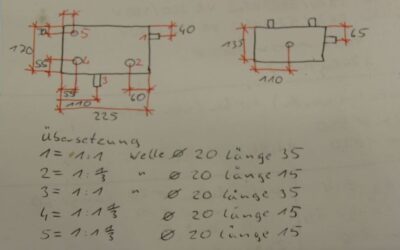 5
1
40
120
55
4
2
3
55
110
60
225
135
65
110
Übersetzung
1 = 1:1 Welle ø 20 länge 35
2 = 1: " ø 20 länge 15
3 = 1:1 " ø 20 länge 35
4 = 1:1 ø 20 länge 15
5 = 1:1 ø 20 länge 15